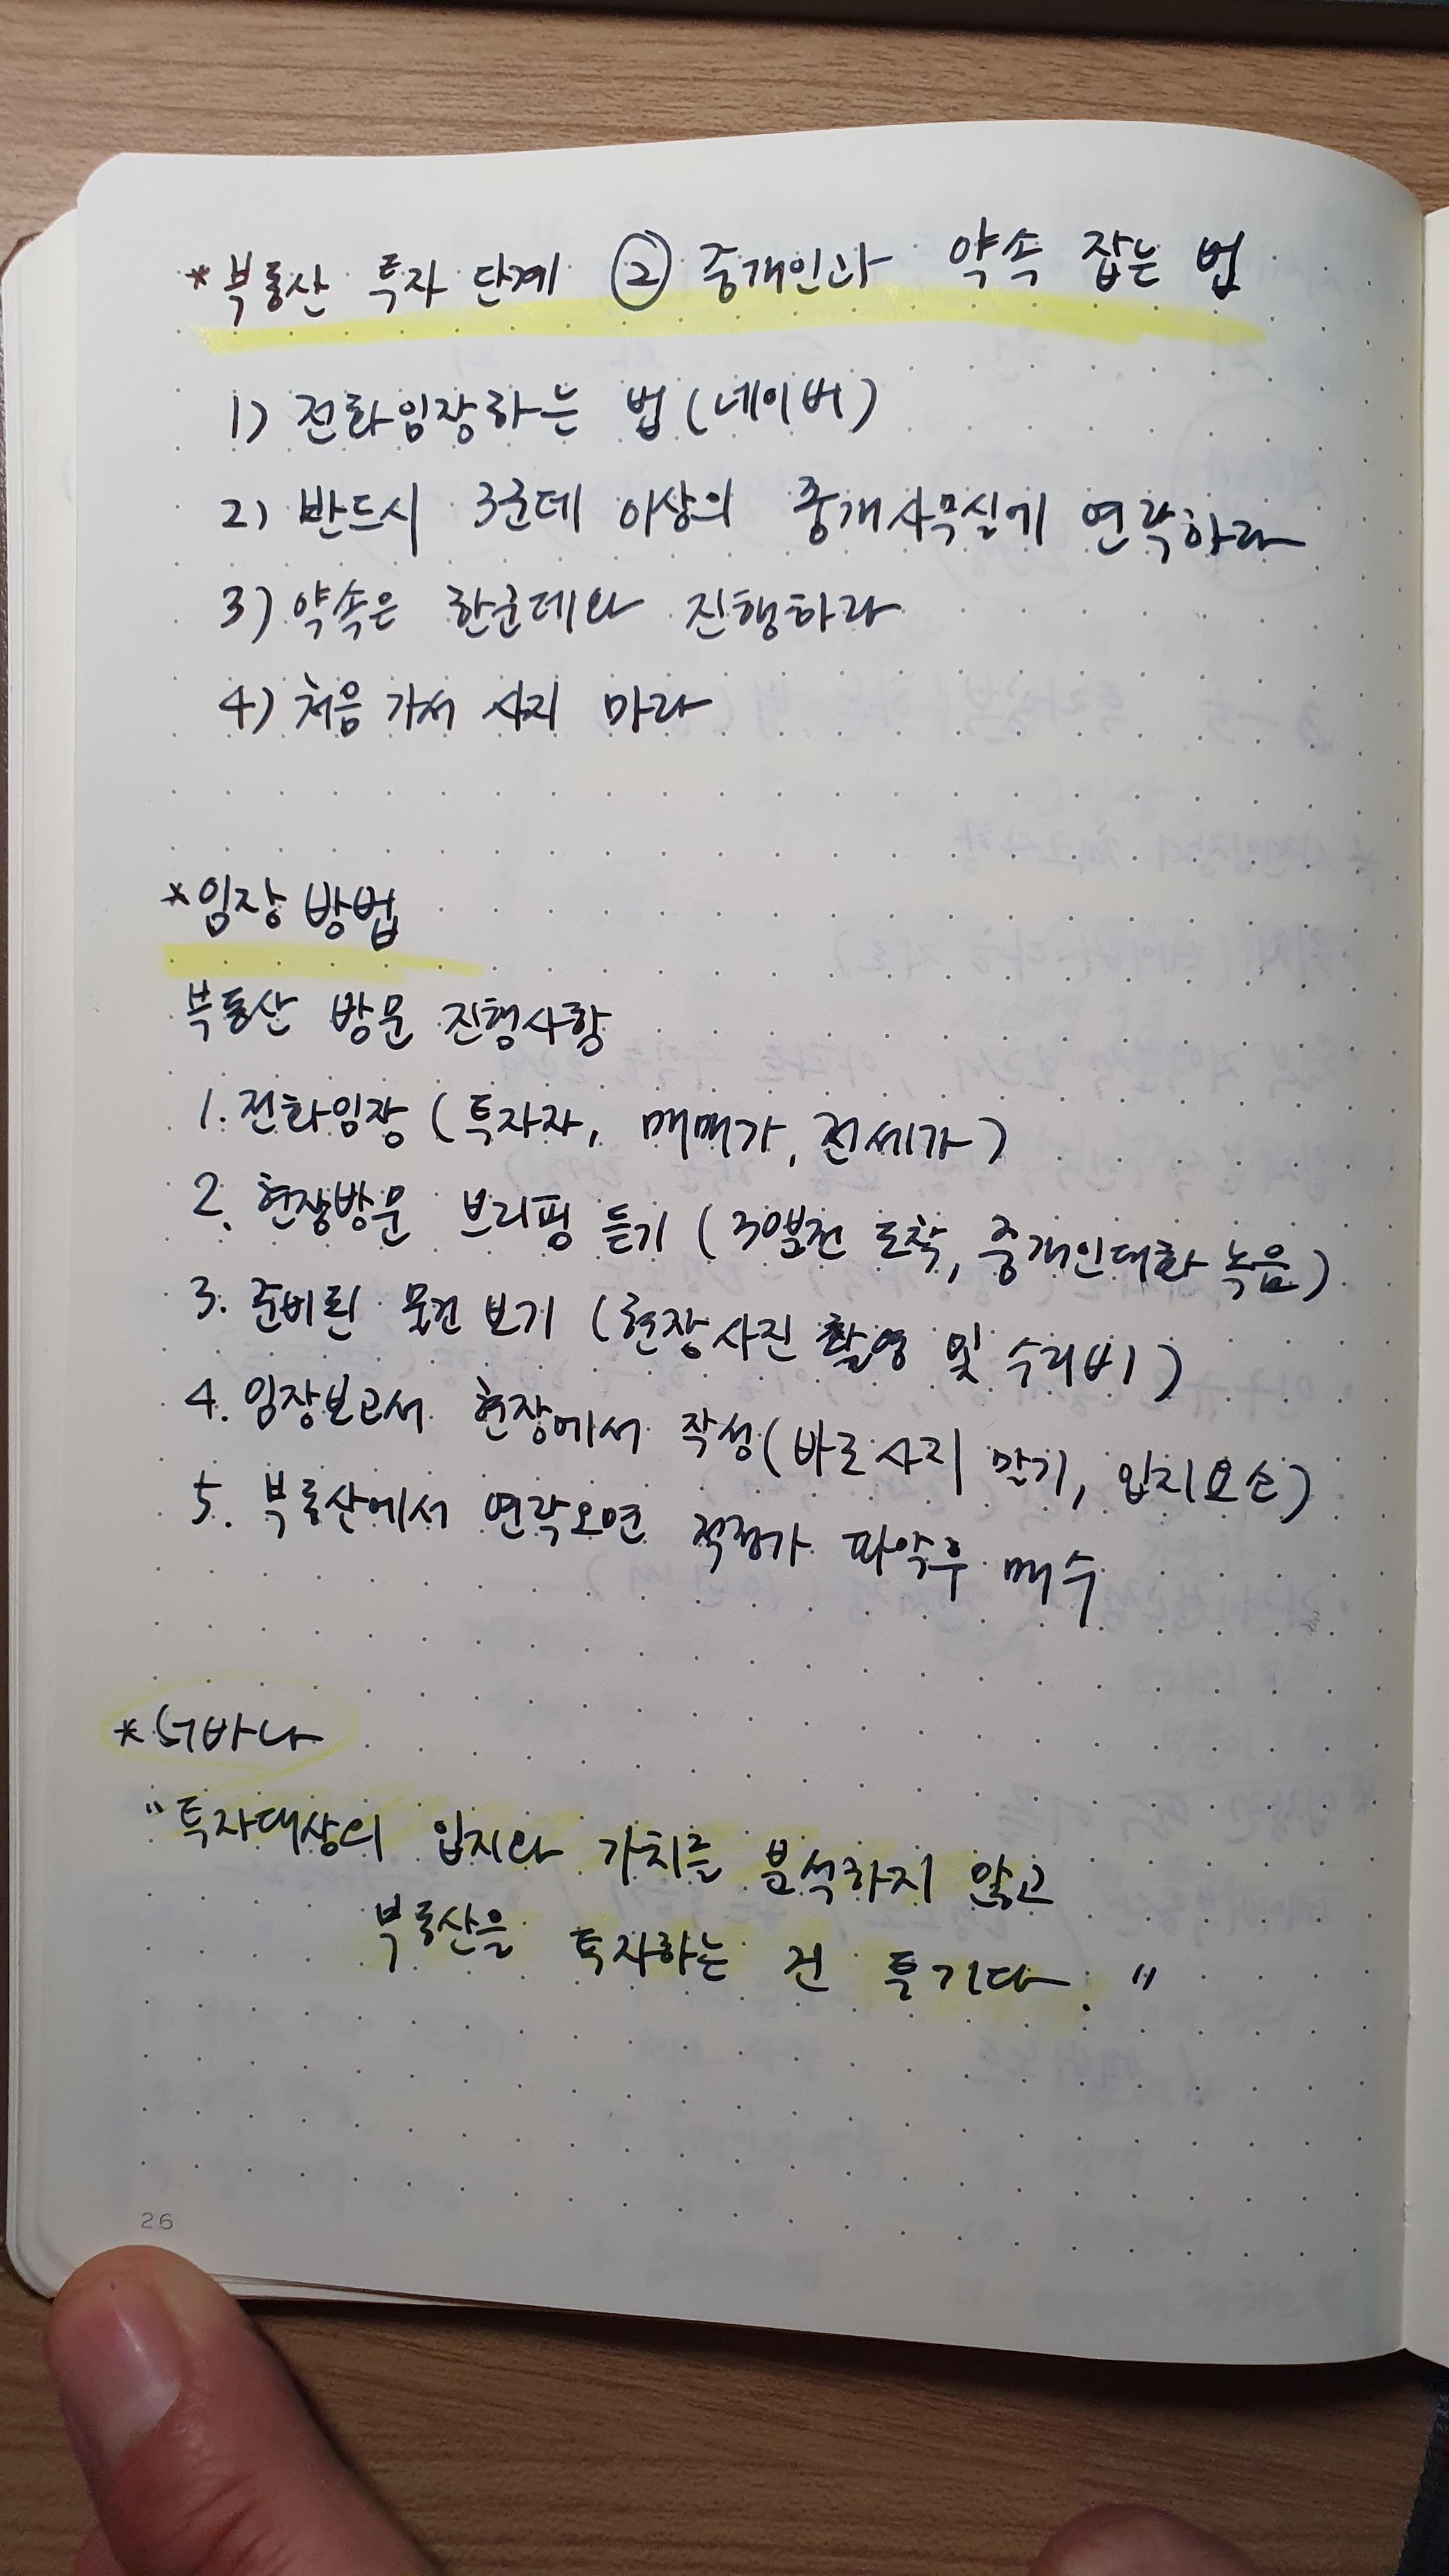 *부동산 투자 단계 ② 중개인과 약속 잡는 법
1) 전화임장하는 법 (네이버)
2) 반드시 3군데 이상의 중개사무실에 연락하라
3) 약속은 한군데와 진행하라
4) 처음 가서 사지 마라
*임장 방법
부동산 방문 진행사항
1. 전화임장 (투자자, 매매가, 전세가)
2. 현장방문 브리핑 듣기 (30분전 도착, 중개인대화 녹음)
3. 준비된 물건 보기 (현장사진 촬영 및 수리비)
4. 임장보고서 현장에서 작성 (바로 사지 말기, 입지요소)
5. 부동산에서 연락오면 적정가 파악후 매수
*너바나
"투자대상의 입지와 가치를 분석하지 않고
부동산을 투자하는 건 투기다."
26